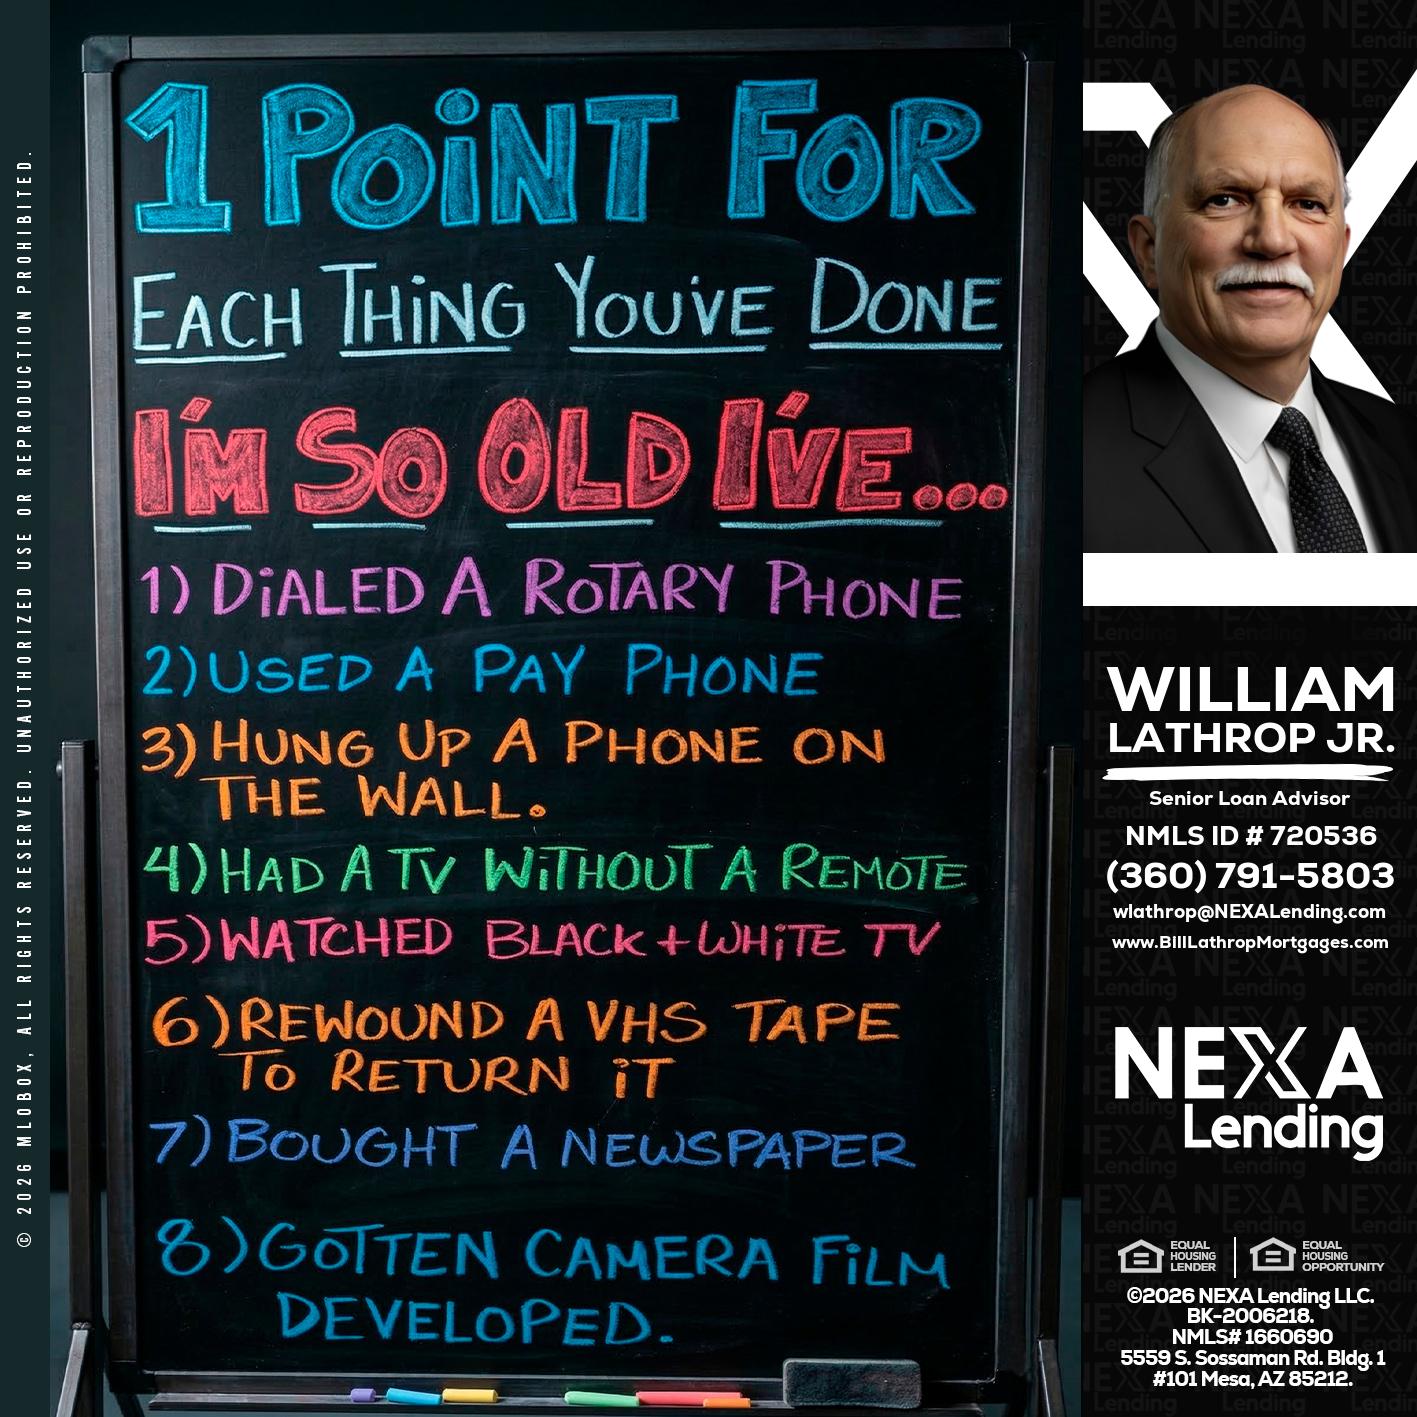 © 2026 MLOBOX, ALL RIGHTS RESERVED. UNAUTHORIZED USE OR REPRODUCTION PROHIBITED.
1 POINT FOR
EACH THING YOU'VE DONE
I'M SO OLD I'VE...
1) DIALED A ROTARY PHONE
2) USED A PAY PHONE
3) HUNG UP A PHONE ON
THE WALL.
4) HAD A TV WITHOUT A REMOTE
5) WATCHED BLACK + WHITE TV
6) REWOUND A VHS TAPE
TO RETURN IT
7) BOUGHT A NEWSPAPER
8) GOTTEN CAMERA FILM
DEVELOPED.
WILLIAM
LATHROP JR.
Senior Loan Advisor
NMLS ID # 720536
(360) 791-5803
wlathrop@NEXALending.com
www.BillLathropMortgages.com
NEXA
Lending
EQUAL
HOUSING
LENDER
EQUAL
HOUSING
OPPORTUNITY
©2026 NEXA Lending LLC.
BK-2006218.
NMLS# 1660690
5559 S. Sossaman Rd. Bldg. 1
#101 Mesa, AZ 85212.